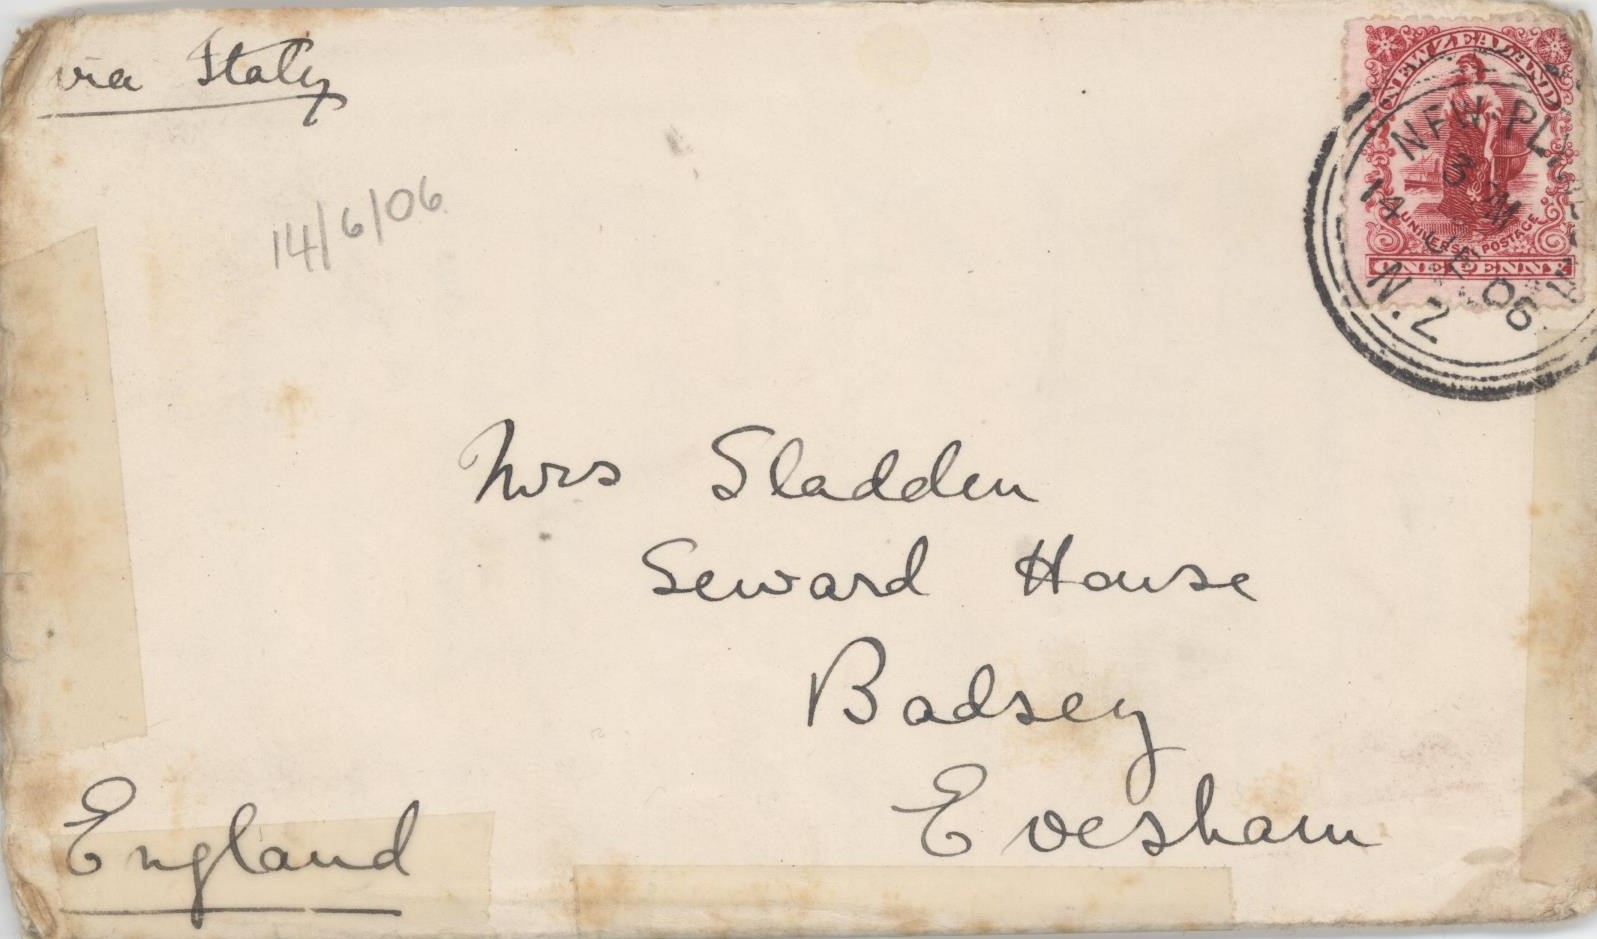 via Italy
14/6/06
NEW ZEALAND
UNIVERSAL POSTAGE
ONE PENNY
NEW PLYMOUTH
3 PM
14 JE 06
N.Z
Mrs Sladden
Seward House
Badsey
Evesham
England